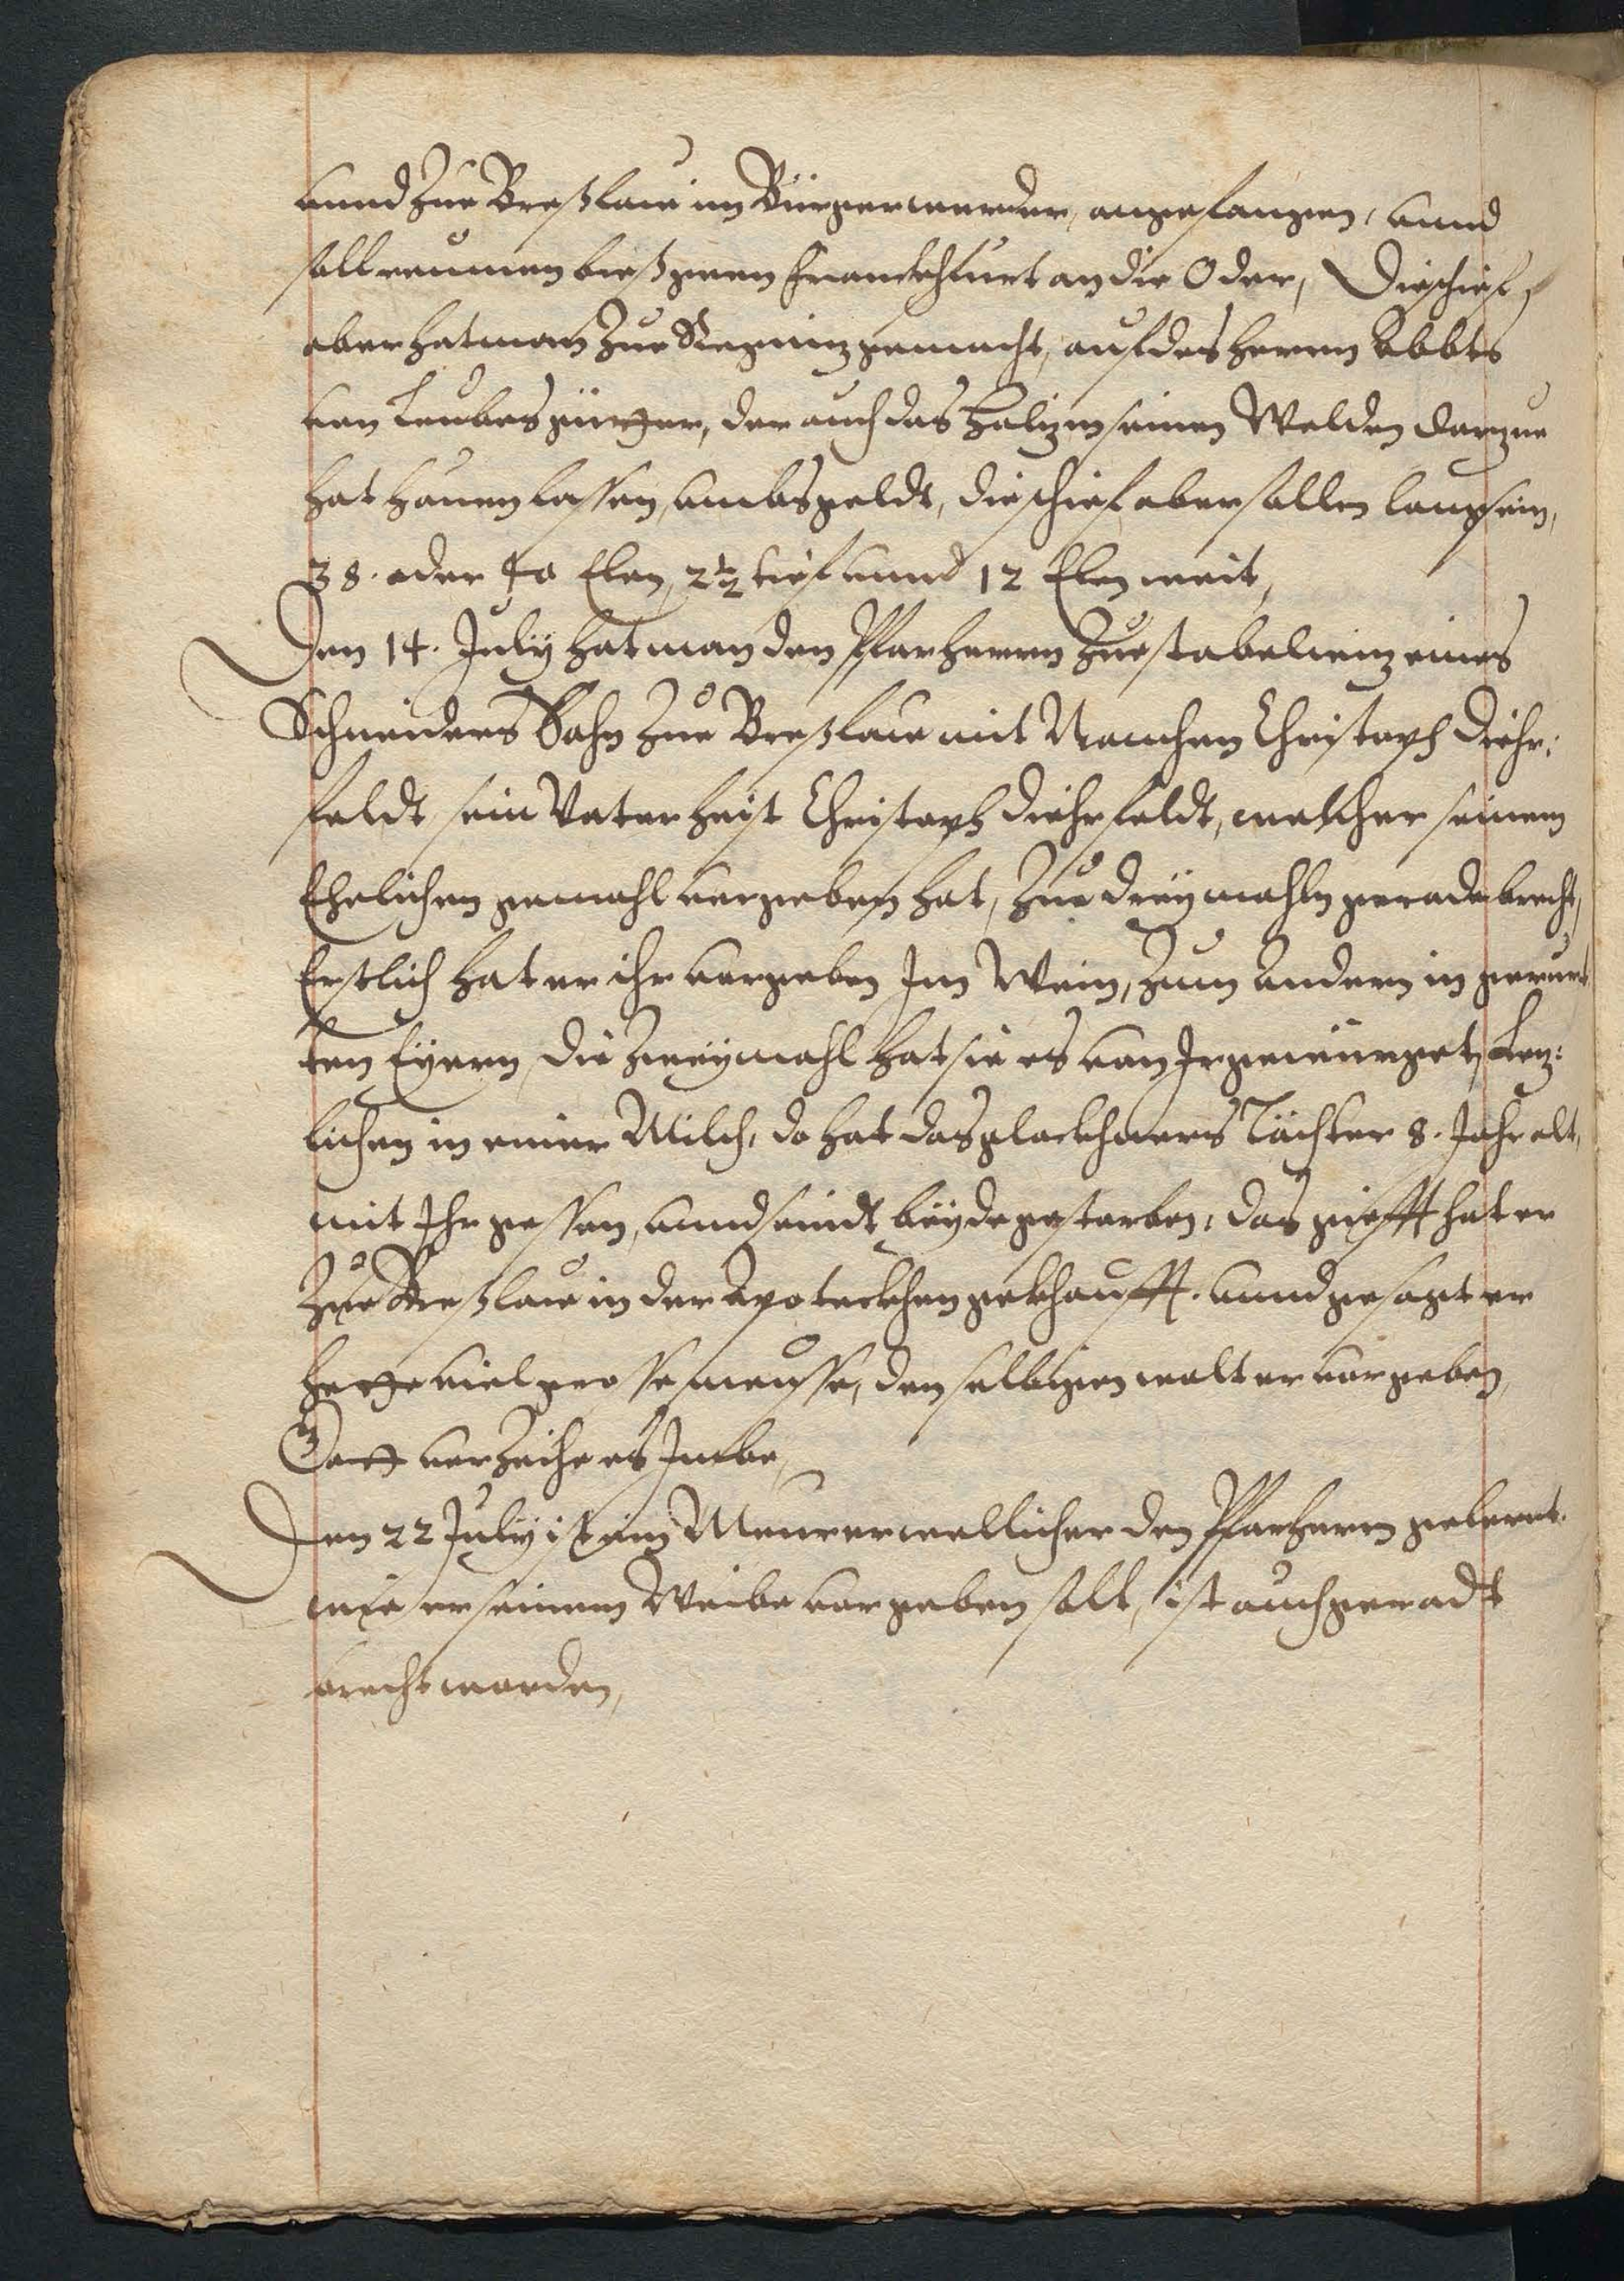 unnd Zue Breßlaw im Bürgerwerder, angefangen, unnd
soll reumen bieß genn Franckhfurt an die Oder, Die schief
aber hat man Zue Regnitz gemacht, auf des herrn Abbts
von Leubes güetter, der auch das holtz in seinen Welden darzue
hat hauen lassen, umbs geldt, die schief aber sollen lang sein,
38. oder 40 Elen, 2½ tief unnd 12 Elen weit,
Den 14. July hat man den Pfarherrn Zue stabelwitz eines
Schneiders Sohn Zue Breßlaw mit Namen Christoph Diehr:
feldt, sein Vater heist Christoph Diehrfeldt, welcher seinem
Ehelichen gemahl vergeben hat, Zue dreymahln geradebrecht,
Erstlich hat er ihr vergeben Im Wein, Zum andern in gerurt
ten Eyern, die Zweymahl hat sie es von Ir gewürget, Letz:
lichen in einer Milch, do hat das glockhners Töchter 8. Jahr alt,
mit Ihr gessen, unnd seindt beyde gestorben, das giefft hat er
Zue Breßlaw in der Apoteckhen gekhaufft. unnd gesagt er
hette viel grosse meusse, den selbigen wolt er vergeben,
Gott verzeihe es Imbe,
Den 22 July ist ein Meurer wellicher den Pfarherrn gelernt.
wie er seinem Weibe vergeben solt, ist auch geradt
brecht worden,